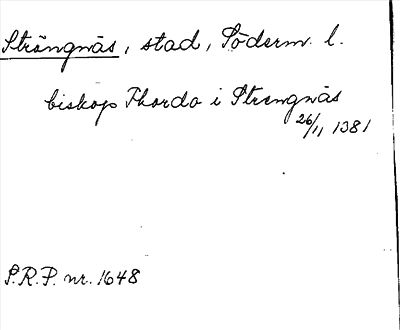 Strängnäs, stad, Söderm. l.
biskop Thordo i Strengnäs
26/11 1381
S.R.P. nr. 1648